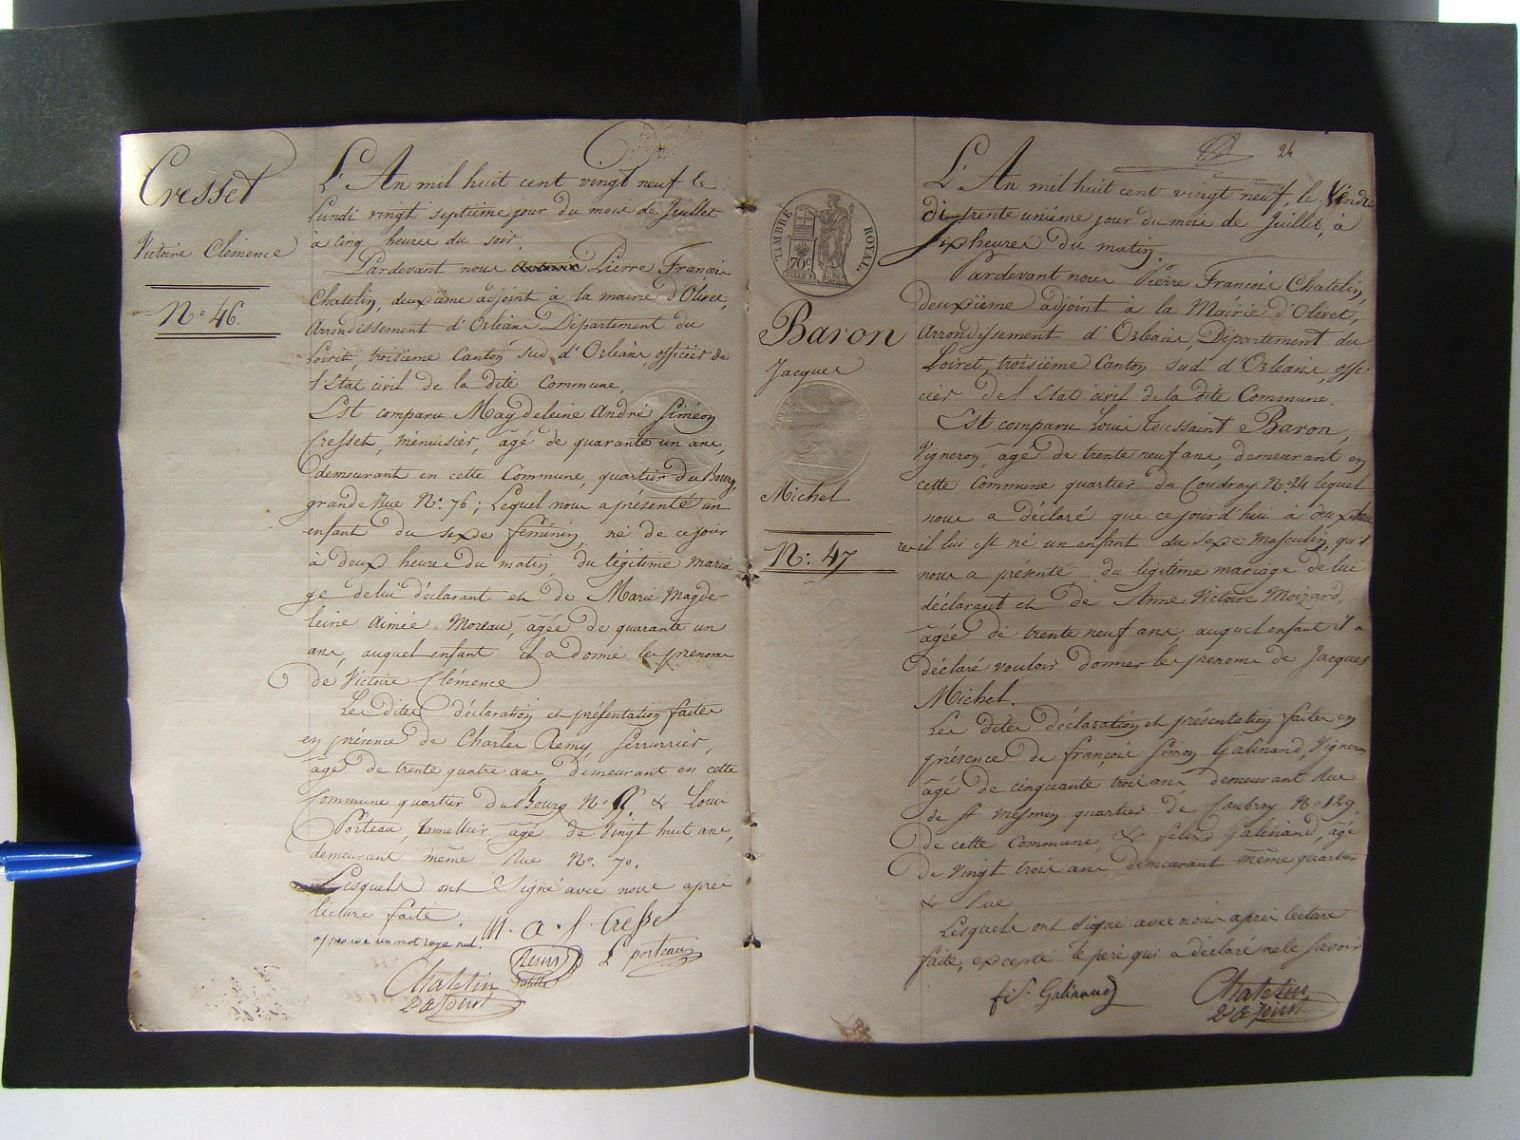 Cresset
Victoire Clémence
N° 46.
L'An mil huit cent vingt neuf le
Lundi vingt septième jour du mois de Juillet
à cinq heures du soir.
Pardevant nous Pierre François
Chatelin, deuxième adjoint à la mairie d'Olivet,
Arrondissement d'Orléans Département du
Loiret, troisième Canton sud d'Orléans, officier de
l'Etat civil de la dite Commune.
Est comparu Magdeleine André Siméon
Cresset, menuisier, âgé de quarante un ans,
demeurant en cette Commune, quartier du Bourg,
grande Rue N°. 76; Lequel nous a présenté un
enfant du sexe féminin, né de ce jour
à deux heures du matin du légitime maria
ge de lui déclarant et de Marie Magde-
leine Aimée Moreau, âgée de quarante un
ans, auquel enfant il a donné les prénoms
de Victoire Clémence
Les dites déclaration et présentation faites
en présence de Charles Remy, Serrurier,
âgé de trente quatre ans, demeurant en cette
Commune quartier du Bourg N° & Louis
Porteau, Tonnellier, âgé de vingt huit ans,
demeurant même Rue N°. 70.
Lesquels ont signé avec nous après
lecture faite.
approuvé un mot rayé nul.
M. a. S. Cresse
Remy
L porteau
Chatelin
2e adjoint
24
TIMBRE ROYAL
70c
Baron
Jacques
Michel
N°: 47
L'An mil huit cent vingt neuf, le Vendre
di trente unième jour du mois de Juillet, à
six heures du matin.
Pardevant nous Pierre François Chatelin,
deuxième adjoint à la Mairie d'Olivet,
Arrondissement d'Orléans, Département du
Loiret, troisième Canton sud d'Orléans, offi-
cier de l'Etat civil de la dite Commune.
Est comparu Louis Toussaint Baron,
Vigneron, âgé de trente neuf ans, demeurant en
cette Commune quartier du Coudray N° 24 lequel
nous a déclaré que ce jourd'hui à deux heu
res il lui est né un enfant du sexe masculin, qu'il
nous a présenté du légitime mariage de lui
déclarant et de Anne Victoire Moizard,
âgée de trente neuf ans, auquel enfant il a
déclaré vouloir donner les prenoms de Jacques
Michel.
Les dites déclaration et présentation faites en
présence de françois Simon Galinand, Vigneron
âgé de cinquante trois ans, demeurant Rue
de St Mesmin quartier de Caubroy N° 129
de cette Commune, & félix Galinand, âgé
de vingt trois ans, demeurant même quartier
& Rue
Lesquels ont signé avec nous après lecture
faite, excepté le père qui a déclaré ne le savoir
f. S. Galinand
Chatelin
2e adjoint